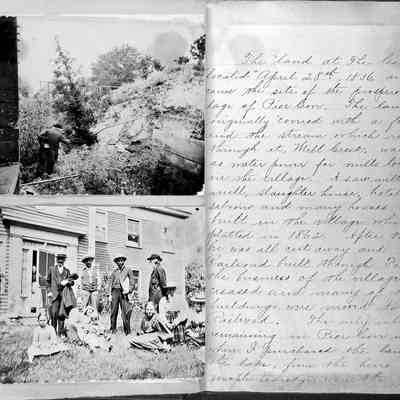 The land at The
located April 28th, 1836 an
came the site of the prosper
lage of Pier Cove. The lan
originally covered with a f
and the stream which
through it, Well Creek, wa
as water power for mills lo
on the village. A saw mill
mill, slaughter house, hotel
saloons and many houses
built in the village whi
platted in 1862. After
be was all cut away and
railroad built through
the business of the village
ceased and many of
buildings were moved
Railroad.
remaining in Pier Cove
when I purchased the lan
the lake, from the heirs